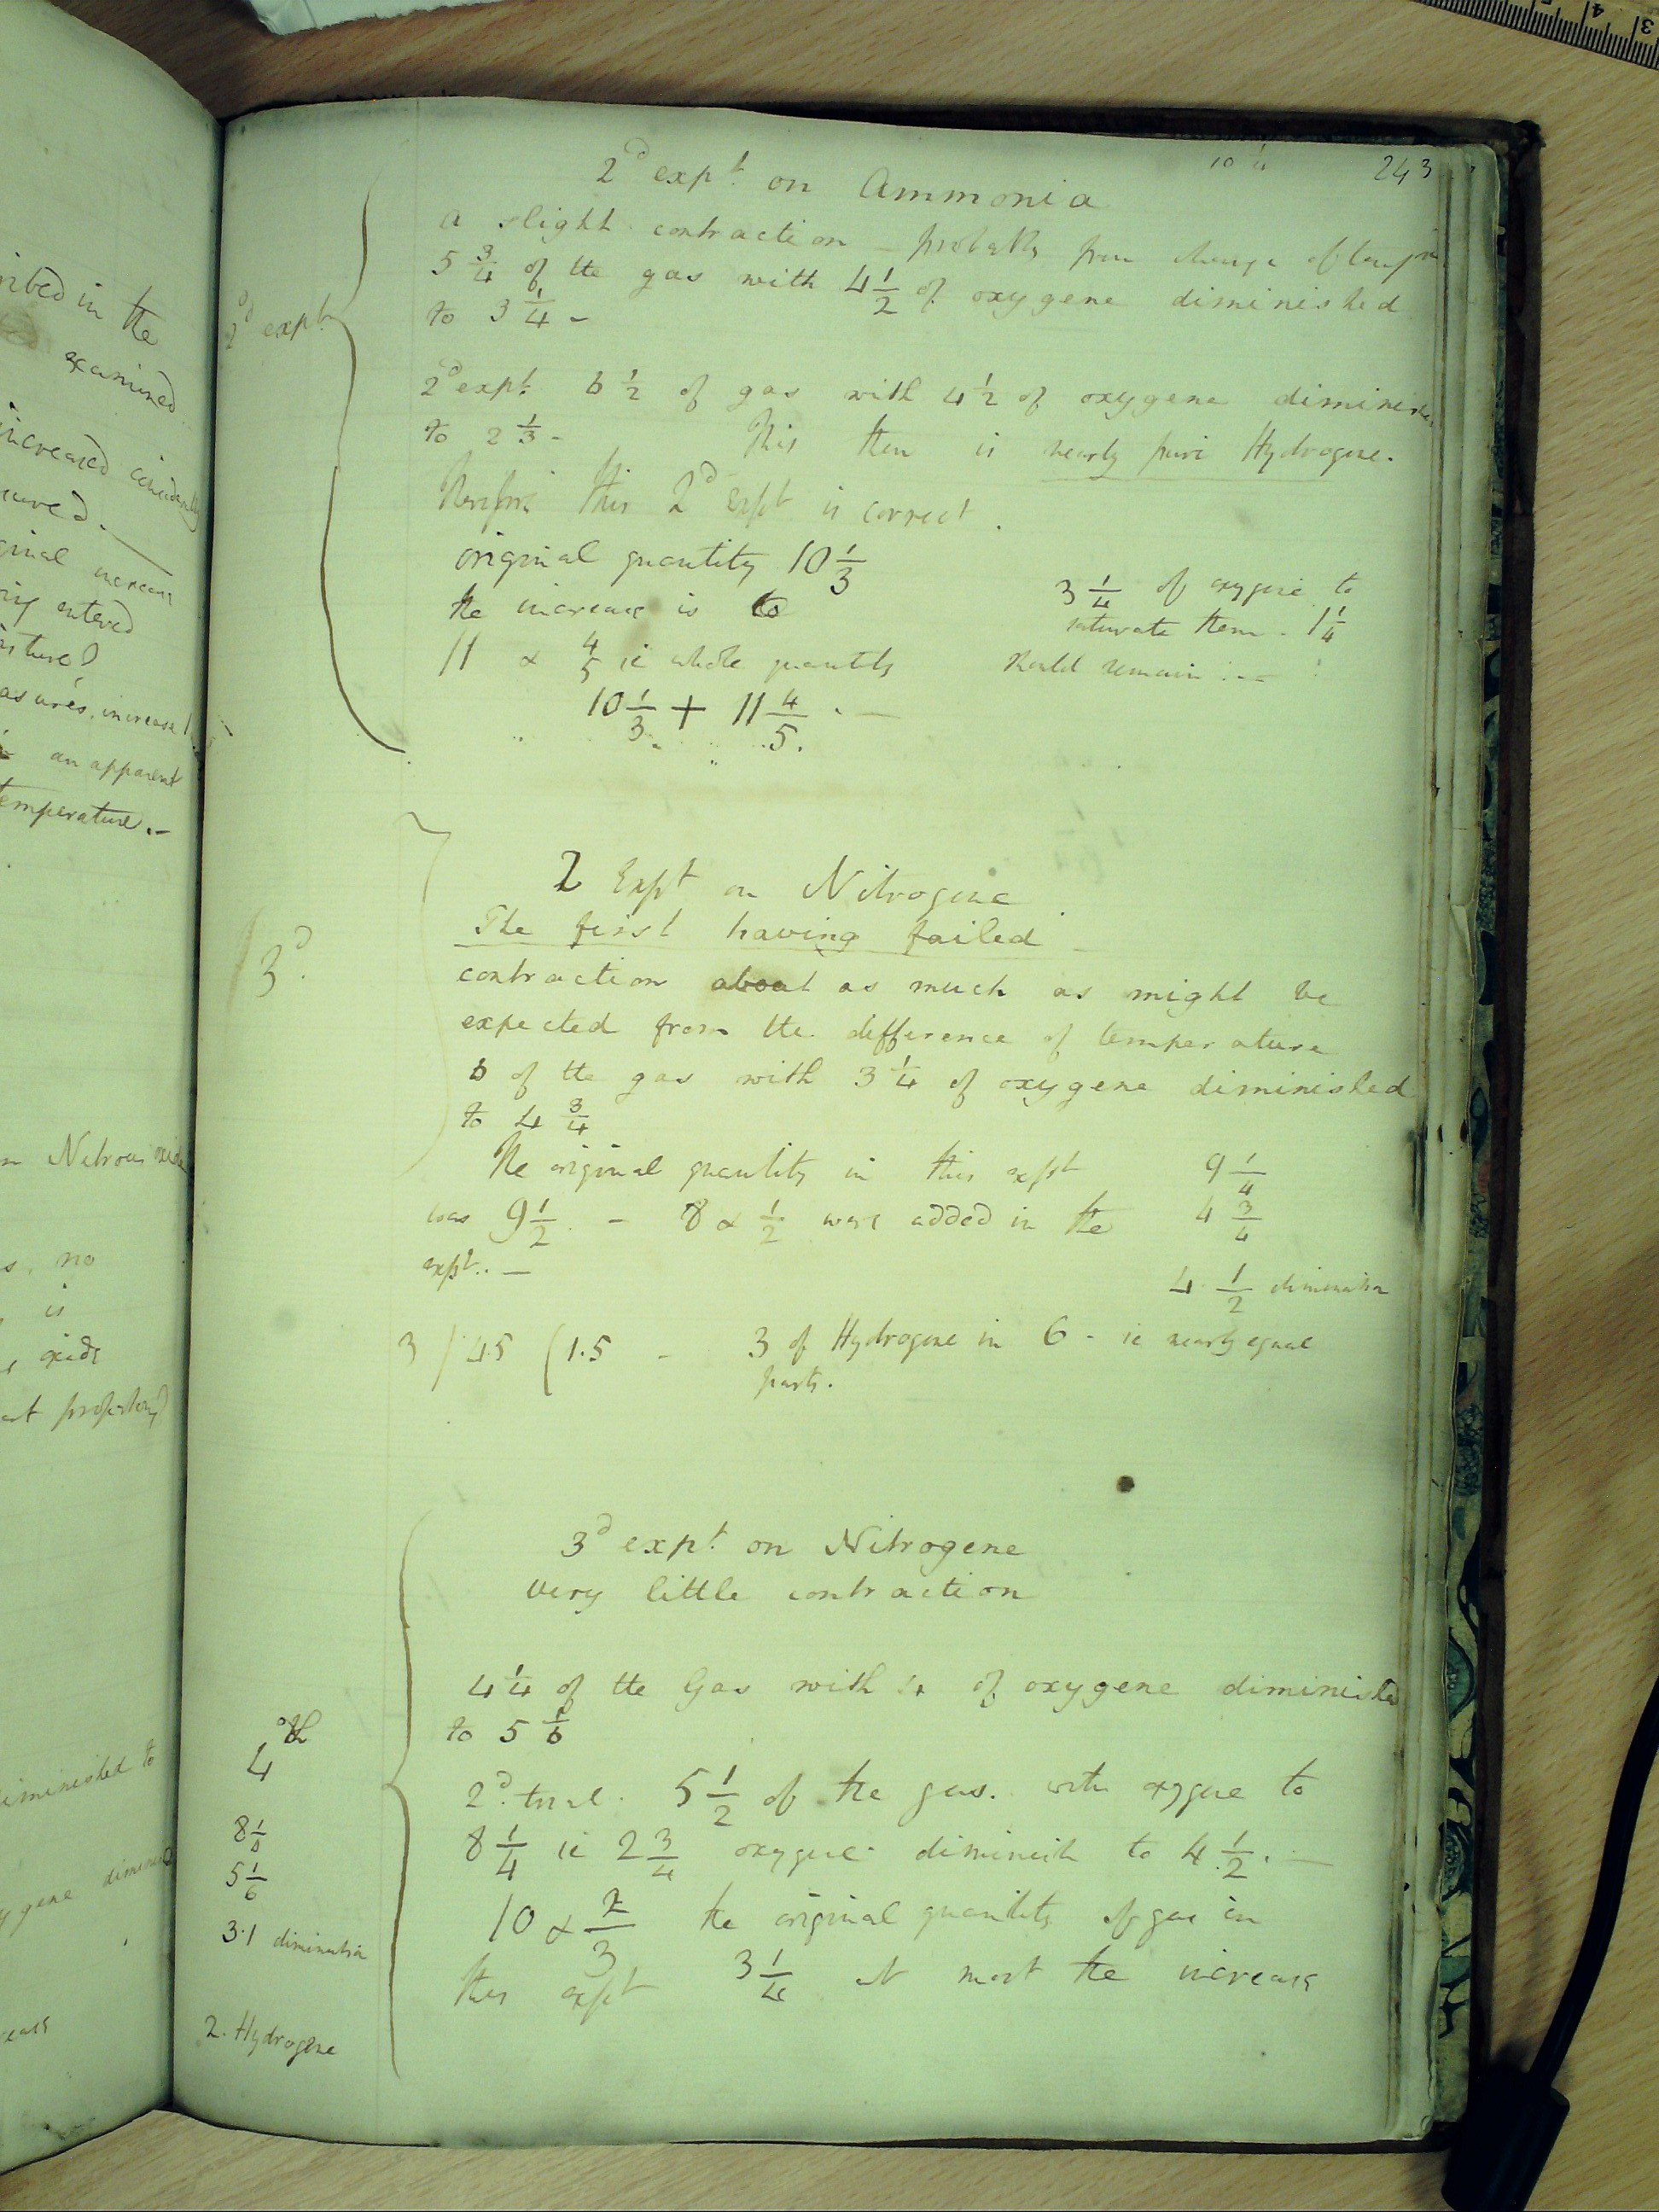 ribed in the
examined
increased
ured.
ginal increase
ing entered
asures, increase
an apparent
temperature.-
Nitrous oxide
s, no
is
oxide
iminished to
ygene
243
2d expt. on Ammonia
a slight contraction – probably from change of
5 3/4 of the gas with 4 1/2 of oxygene diminished
to 3 1/4 -
2d expt.
2d expt. 6 1/2 of gas with 4 1/2 of oxygene
to 2 1/3 - This then is nearly pure Hydrogene.
Therefore this 2d Expt is correct.
original quantity 10 1/3
the increase is to
11 & 4/5 ie whole quantity
10 1/3 + 11 4/5. —
3 1/4 of oxygene to
saturate them. 1 1/4
should remain
2 Expt on Nitrogene
The first having failed
3d.
contraction about as much as might be
expected from the difference of temperature
6 of the gas with 3 1/4 of oxygene diminished
to 4 3/4
The original quantity in this expt
was 9 1/2. - 8 & 1/2 were added in the
expt.. —
9 1/4
4 3/4
4 1/2 diminution
3 / 4.5 ( 1.5 - 3 of Hydrogene in 6 - ie nearly equal
parts.
3d expt. on Nitrogene
very little contraction
4 1/4 of the Gas with 4 of oxygene
to 5 1/6
4th
2d. trial. 5 1/2 of the gas. with oxygene to
8 1/4 ie 2 3/4 oxygene diminish to 4 1/2. —
10 & 2/3 the original quantity of gas in
this expt 3 1/4 at most the increase
5 1/6
3.1 diminution
2. Hydrogene